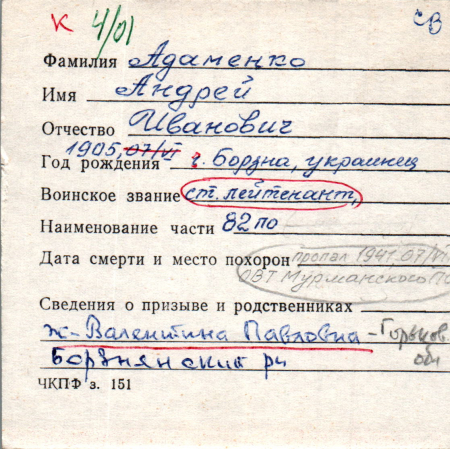 К 4/01 СВ
Фамилия Адаменко
Имя Андрей
Отчество Иванович
Год рождения 1905, 07/VI г. Борзна, украинец
Воинское звание ст. лейтенант,
Наименование части 82 по
Дата смерти и место похорон пропал 1941.07/VI
ОВТ Мурманского
Сведения о призыве и родственниках
ж-Валентина Павловна - Горьков.
Борзнянский рн обл
ЧКПФ з. 151